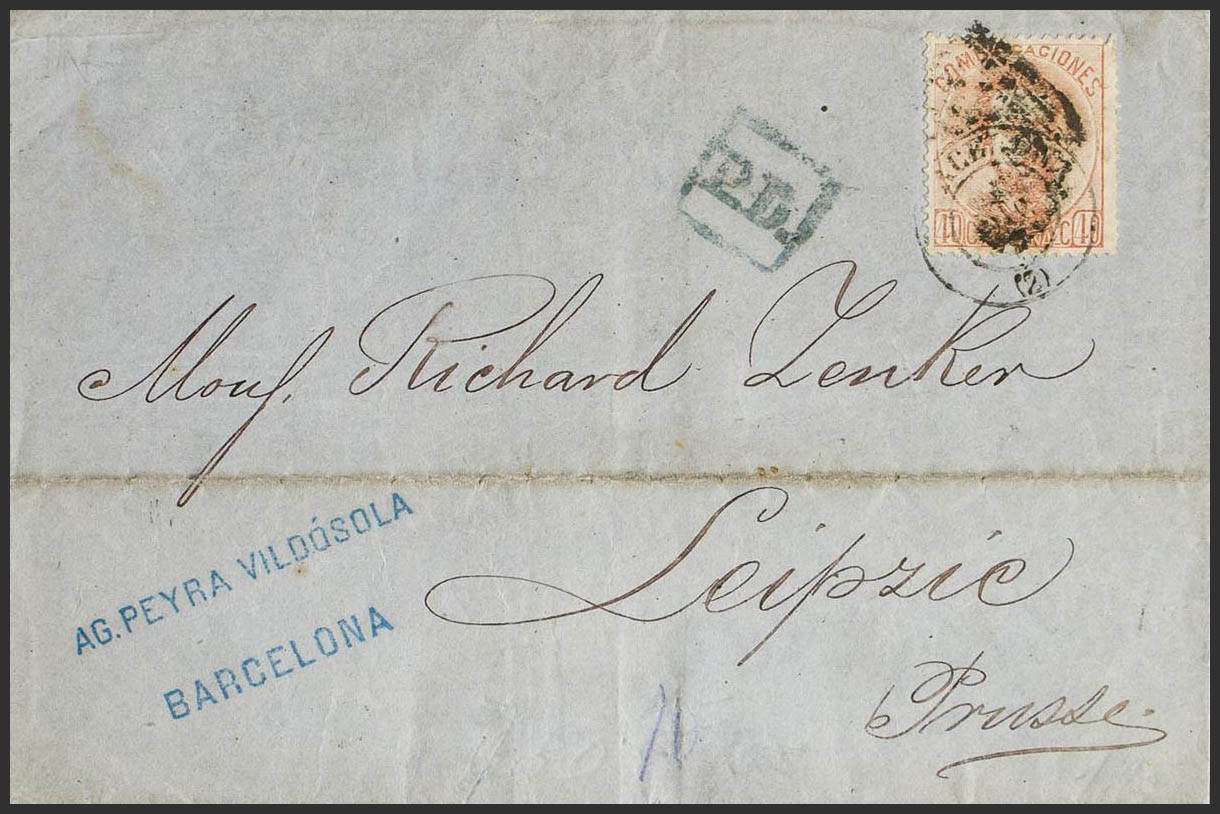 COMUNICACIONES
40 40
P.D.
(2)
Monſ. Richard Zenker
Leipzic
Prusse.
AG. PEYRA VILDÓSOLA
BARCELONA